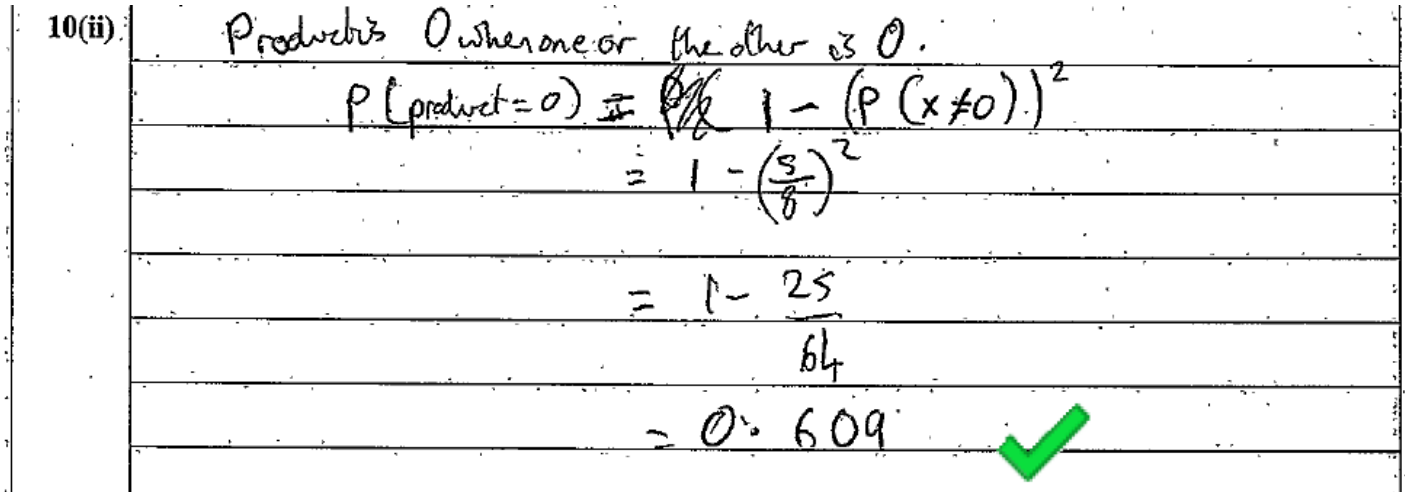 10(ii)
Product is 0 when one or the other is 0.
P(product = 0) = 1 - (P(x ≠ 0))²
= 1 - (5/8)²
= 1 - 25/64
= 0.609